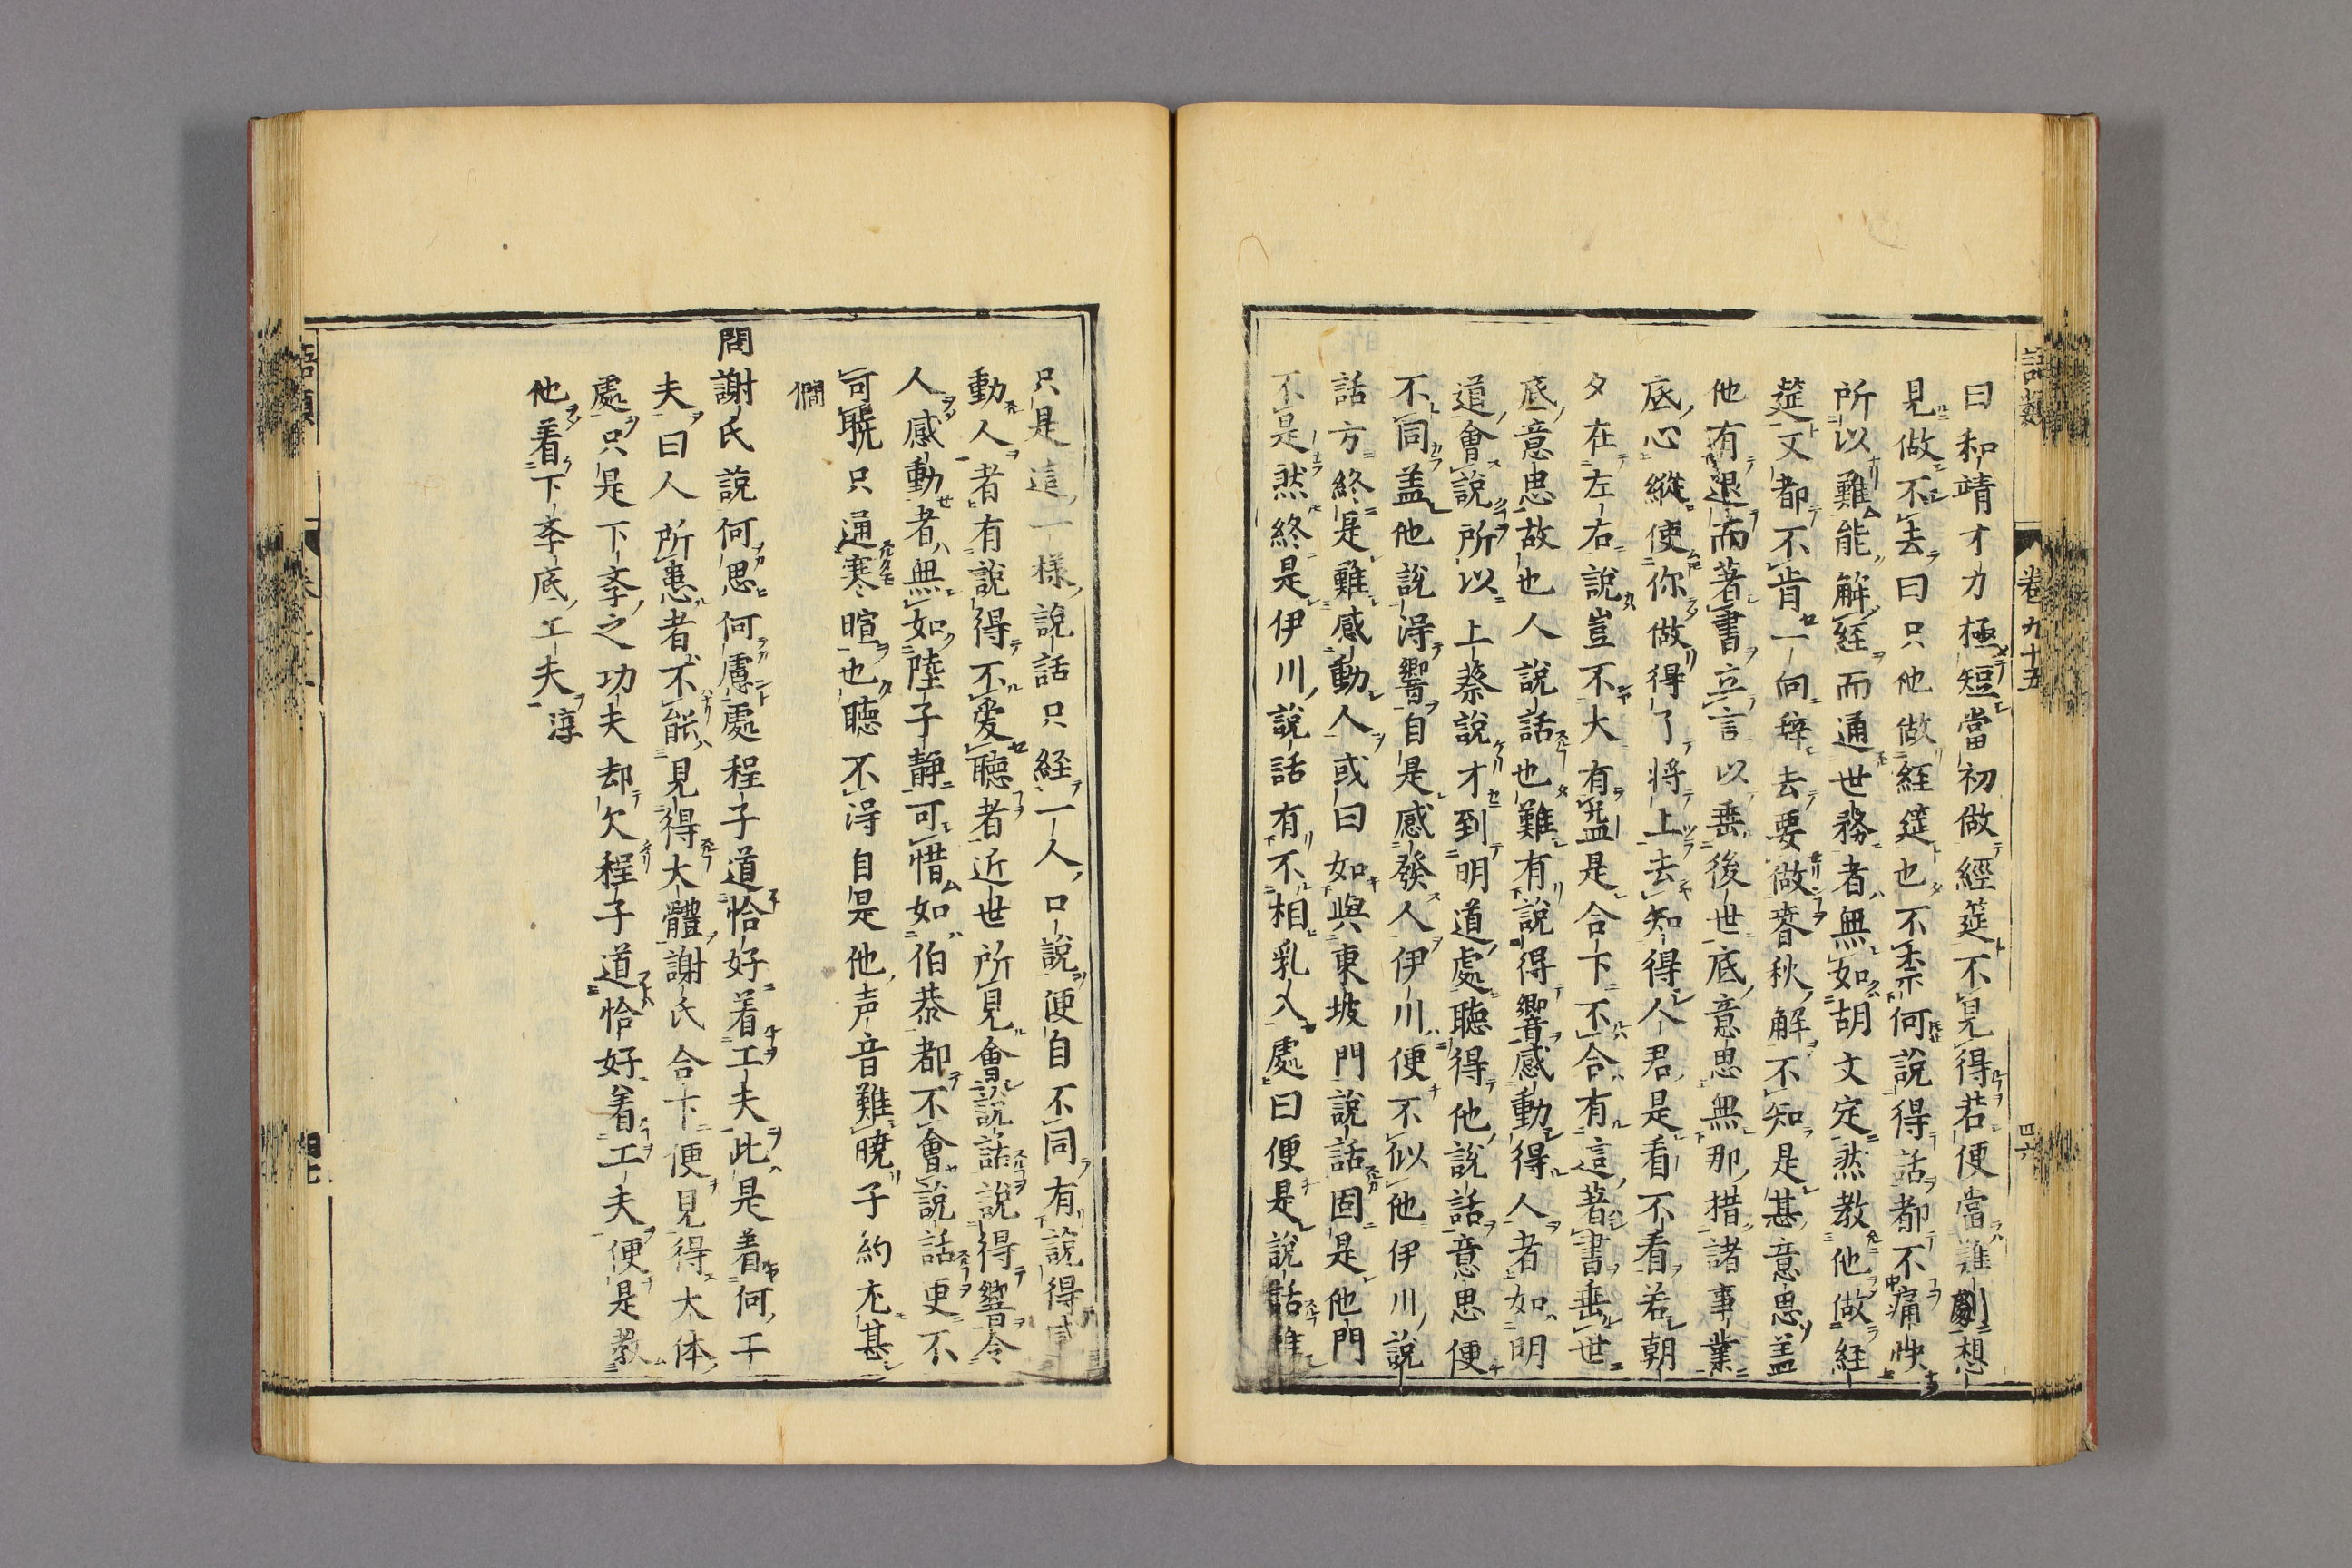 語類　卷九十五　四六
曰和靖才力極短當初做經筵不見得若便當難劇想
見做不去曰只他做経筵也不柰何說得話都不痛快
所以難能解経而通世務者無如胡文定然教他做経
筵又都不肯一向辤去要做春秋解不知是甚意思盖
他有退而著書立言以垂後世底意思無那措諸事業
底心縱使你做得了将上去知得人君是看不看若朝
夕在左右說豈不大有益是合下不合有這著書垂世
底意思故也人說話也難有說得響感動得人者如明
道會說所以上蔡說才到明道處聴得他說話意思便
不同盖他說淂響自是感發人伊川便不似他伊川說
話方終是難感動人或曰如與東坡門說話固是他門
不是然終是伊川說話有不相乳入處曰便是說話難
只是這一様說話只経一人口說便自不同有說得感
動人者有說得不爱聴者近世所見會說話說得響令
人感動者無如陸子靜可惜如伯恭都不會說話更不
可暁只通寒暄也聴不淂自是他声音難暁子約尤甚
僴
問謝氏說何思何慮處程子道恰好着工夫此是着何工
夫曰人所患者不能見得大體謝氏合下便見得大体
處只是下斈之功夫却欠程子道恰好着工夫便是教
他着下斈底工夫淳
語類